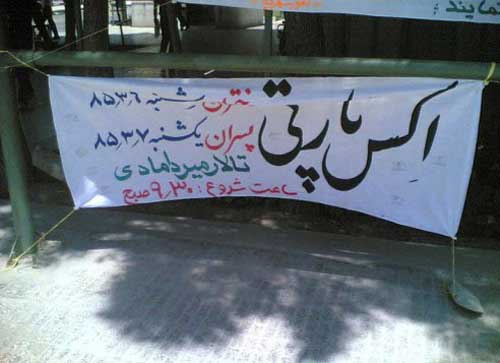 نمایند :
اکس پارتی
دختران شنبه ۸۵,۳,۶
پسران یکشنبه ۸۵,۳,۷
تالار میردامادی
ساعت شروع : ۹,۳۰ صبح